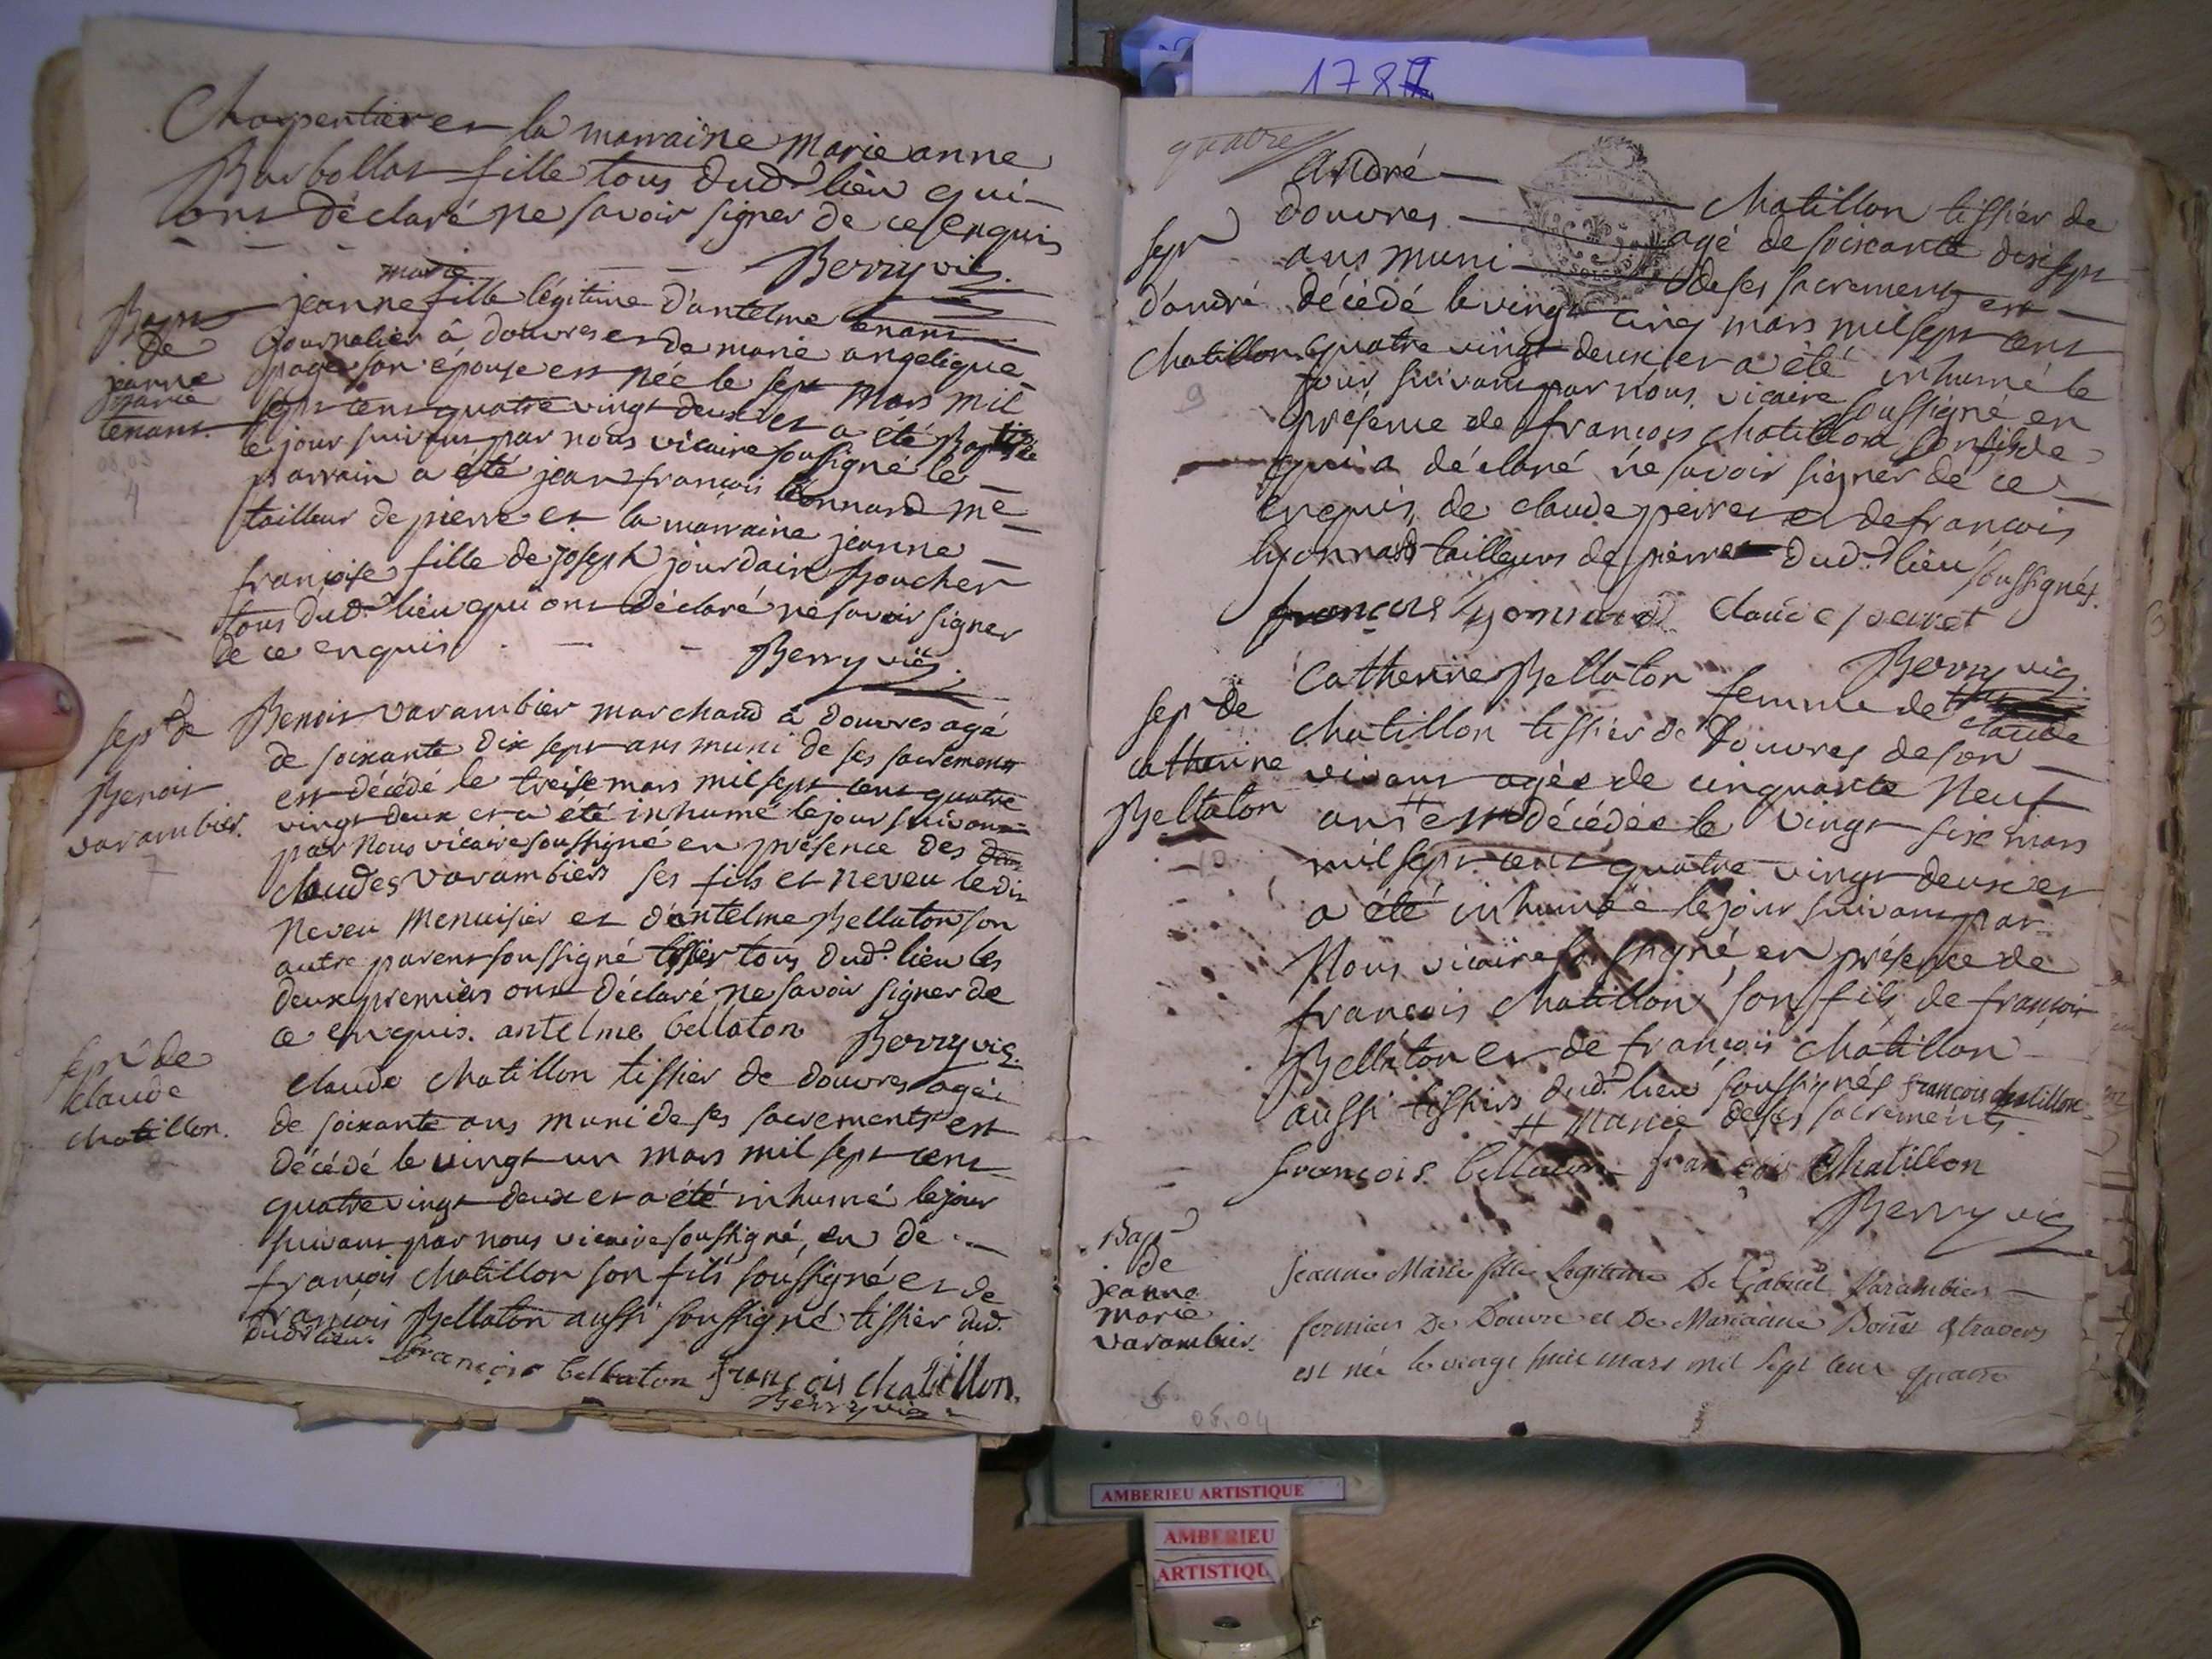 1787
Charpentier et la marraine Marie anne
Barbollat fille tous dud.t lieu qui
ont déclaré ne savoir signer de ce enquis
Berry vic.
Bapt
de
jeanne
marie
tenant.
08.03
4
marie
jeanne fille légitime d'antelme tenant
journalier à douvres et de marie angelique
page son épouse est née le sept mars mil
sept cent quatre vingt deux et a été Baptisée
le jour suivant par nous vicaire soussigné le
parrain a été jean françois Lionnard me
tailleur de pierre et la marraine jeanne
françoise fille de joseph jourdain boucher
tous dud.t lieu qui ont déclaré ne savoir signer
de ce enquis
Berry vic.
sep.r de
Benoit
varambier.
7
Benoit varambier marchand à douvres agé
de soixante dix sept ans muni de ses sacrements
est décédé le treise mars mil sept cent quatre
vingt deux et a été inhumé le jour suivant
par nous vicaire soussigné en présence des
claudes varambiers ses fils et neveu ledit
neveu menuisier et d'antelme Bellaton son
autre parent soussigné tissier tous dud.t lieu les
deux premiers ont déclaré ne savoir signer de
ce enquis. antelme bellaton Berry vic.
sep.r de
claude
chatillon.
8
claude chatillon tissier de douvres agé
de soixante ans muni de ses sacrements est
décédé le vingt un mars mil sept cent
quatre vingt deux et a été inhumé le jour
suivant par nous vicaire soussigné, en de
françois chatillon son fils soussigné et de
françois Bellaton aussi soussigné tissier dud.
dud.t lieu.
françois bellaton françois chatillon.
Berry vic.
quatre
sep.r
d'andré
chatillon.
9
andré chatillon tissier de
douvres agé de soixante dix sept
ans muni de ses sacrements est
décédé le vingt cinq mars mil sept cent
quatre vingt deux et a été inhumé le
jour suivant par nous vicaire soussigné en
présence de françois chatillon son fils de
qui a déclaré ne savoir signer de ce
enquis, de claude perret et de françois
lyonnard tailleurs de pierre dud.t lieu soussignés.
françois lyonnard claude peret
Berry vic.
sep.r de
catherine
Bellaton
10
catherine Bellaton femme de claude
chatillon tissier de Douvres de son
vivant agée de cinquante neuf
ans # est décédée le vingt six mars
mil sept cent quatre vingt deux et
a été inhumée le jour suivant par
nous vicaire soussigné, en présence de
françois chatillon son fils, de françois
Bellaton et de françois chatillon
aussi tissiers dud.t lieu soussignés françois chatillon
# Munie de ses sacrements
françois bellaton françois Chatillon
Berry vic
Bap.t
de
jeanne
marie
varambier.
5
08.04
jeanne Marie fille Legitime De Gabriel Varambier
fermier De Douvre et De Marianne Bonet
est née le vingt huit mars mil sept cent quatre
AMBERIEU ARTISTIQUE
AMBERIEU
ARTISTIQU